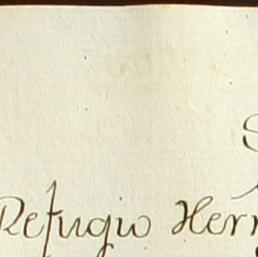 Refugio Her